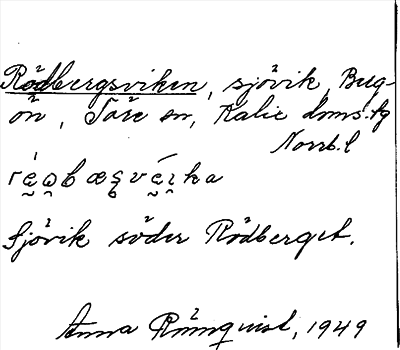 Rödbergsviken, sjövik, Bug-
ön, Töre sn, Kalix dms.tg
Norrb.l
Sjövik söder Rödberget.
Anna Römnquist, 1949